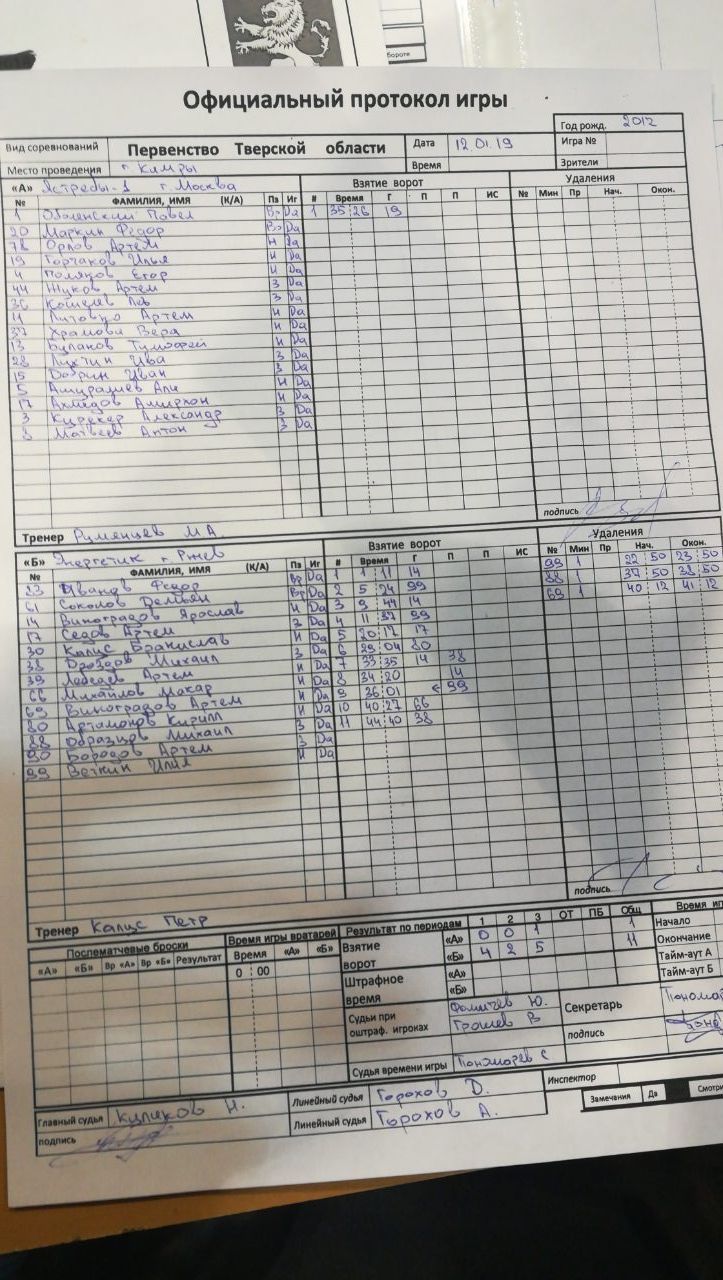 бороте
Официальный протокол игры
Год рожд. 2012
Вид соревнований Первенство Тверской области Дата 12 01.19 Игра №
Место проведения г. Кимры Время Зрители
«А» Ястребы-1 г. Москва Взятие ворот Удаления
№ ФАМИЛИЯ, ИМЯ (К/А) Пз Иг # Время Г П П ИС № Мин Пр Нач. Окон.
1 Оболенский Павел Вр Да 1 35 26 19
20 Маркин Фёдор Вр Да
78 Орлов Артем Н Да
19 Горчаков Илья Н Да
4 Поляков Егор Н Да
44 Жуков Артем З Да
36 Кошелев Лев З Да
Литовко Артем Н Да
37 Храмова Вера Н Да
13 Булаков Тимофей Н Да
28 З Да
15 Добрин Иван З Да
5 Али Н Да
17 Ахмедов Амирхон Н Да
3 Александр З Да
Матвеев Антон З Да
подпись
Тренер Румянцев М.А.
«Б» Энергетик г Ржев Взятие ворот Удаления
№ ФАМИЛИЯ, ИМЯ (К/А) Пз Иг # Время Г П П ИС № Мин Пр Нач. Окон.
23 Иванов Федор Вр Да 1 1 11 14 99 1 22 50 23 50
61 Соколов Демьян Вр Да 2 5 24 99 88 1 37 50 38 50
14 Виноградов Ярослав Н Да 3 9 44 14 69 1 40 12 41 12
17 Седов Артем З Да 4 11 37 99
30 Капис Бранислав Н Да 5 20 17 17
38 Дроздов Михаил З Да 6 29 04 80
39 Лебедев Артем Н Да 7 33 35 14 38
66 Михайлов Макар Н Да 8 34 20 14
69 Виноградов Артем Н Да 9 36 01 99
80 Артамонов Кирилл Н Да 10 40 27 66
88 Образцов Михаил З Да 11 44 40 38
90 Бородов Артем З Да
99 Веткин Илья Н Да
подпись
Тренер Капис Петр
Послематчевые броски Время игры вратарей Результат по периодам 1 2 3 ОТ ПБ Общ Время иг
«А» «Б» Вр «А» Вр «Б» Результат Время «А» «Б» Взятие ворот «А» 0 0 1 1 Начало
0 00 «Б» 4 2 5 11 Окончание
Штрафное время «А» Тайм-аут А
«Б» Тайм-аут Б
Судьи при оштраф. игроках Фомичев Ю. Секретарь
Грошев В подпись
Судья времени игры Пономарев С
Главный судья Куликов И. Линейный судья Горохов Д. Инспектор
подпись Линейный судья Горохов А. Замечания Да Смотри